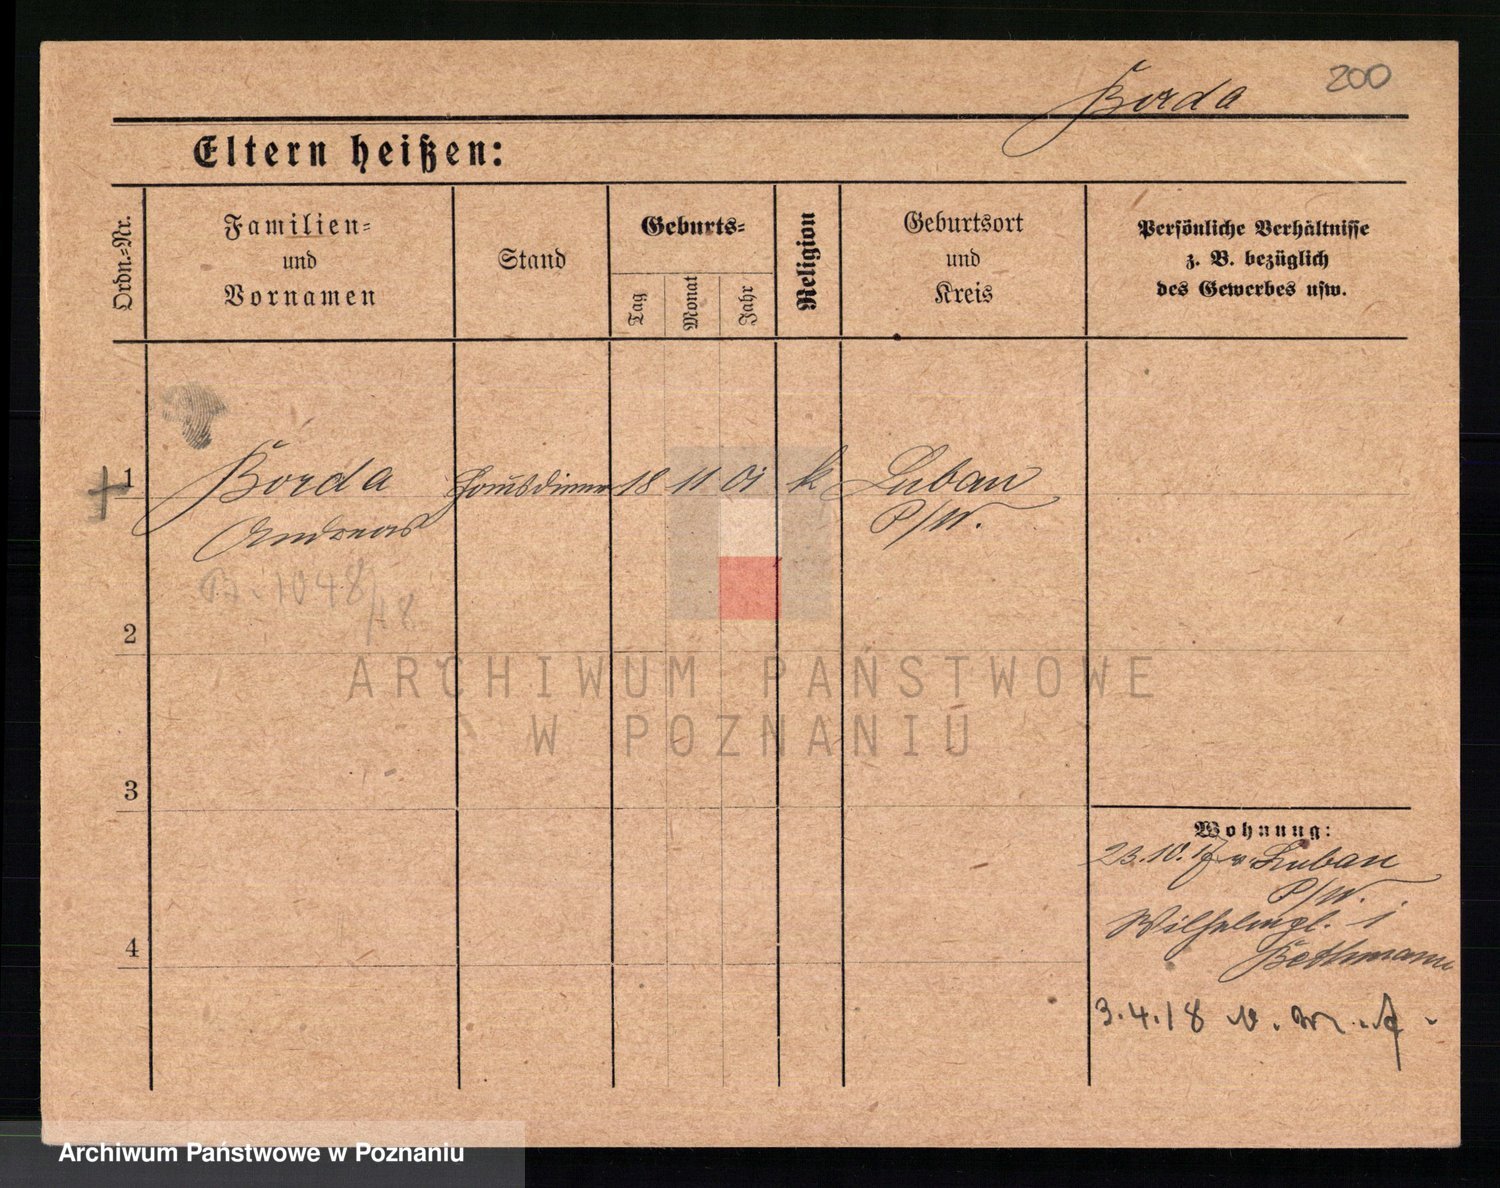 200
Borda
Eltern heißen:
Ordn.-Nr.
Familien-
und
Vornamen
Stand
Geburts-
Tag
Monat
Jahr
Religion
Geburtsort
und
Kreis
Persönliche Verhältnisse
z. B. bezüglich
des Gewerbes usw.
1 Borda Hausdiener 18 11 01 k Luban
Andreas P/W.
1048/18
2
ARCHIWUM PAŃSTWOWE
W POZNANIU
3
Wohnung:
23.10.17 v Luban
P/W.
Wilhelmpl. 1
Bethmann
4
3.4.18
Archiwum Państwowe w Poznaniu